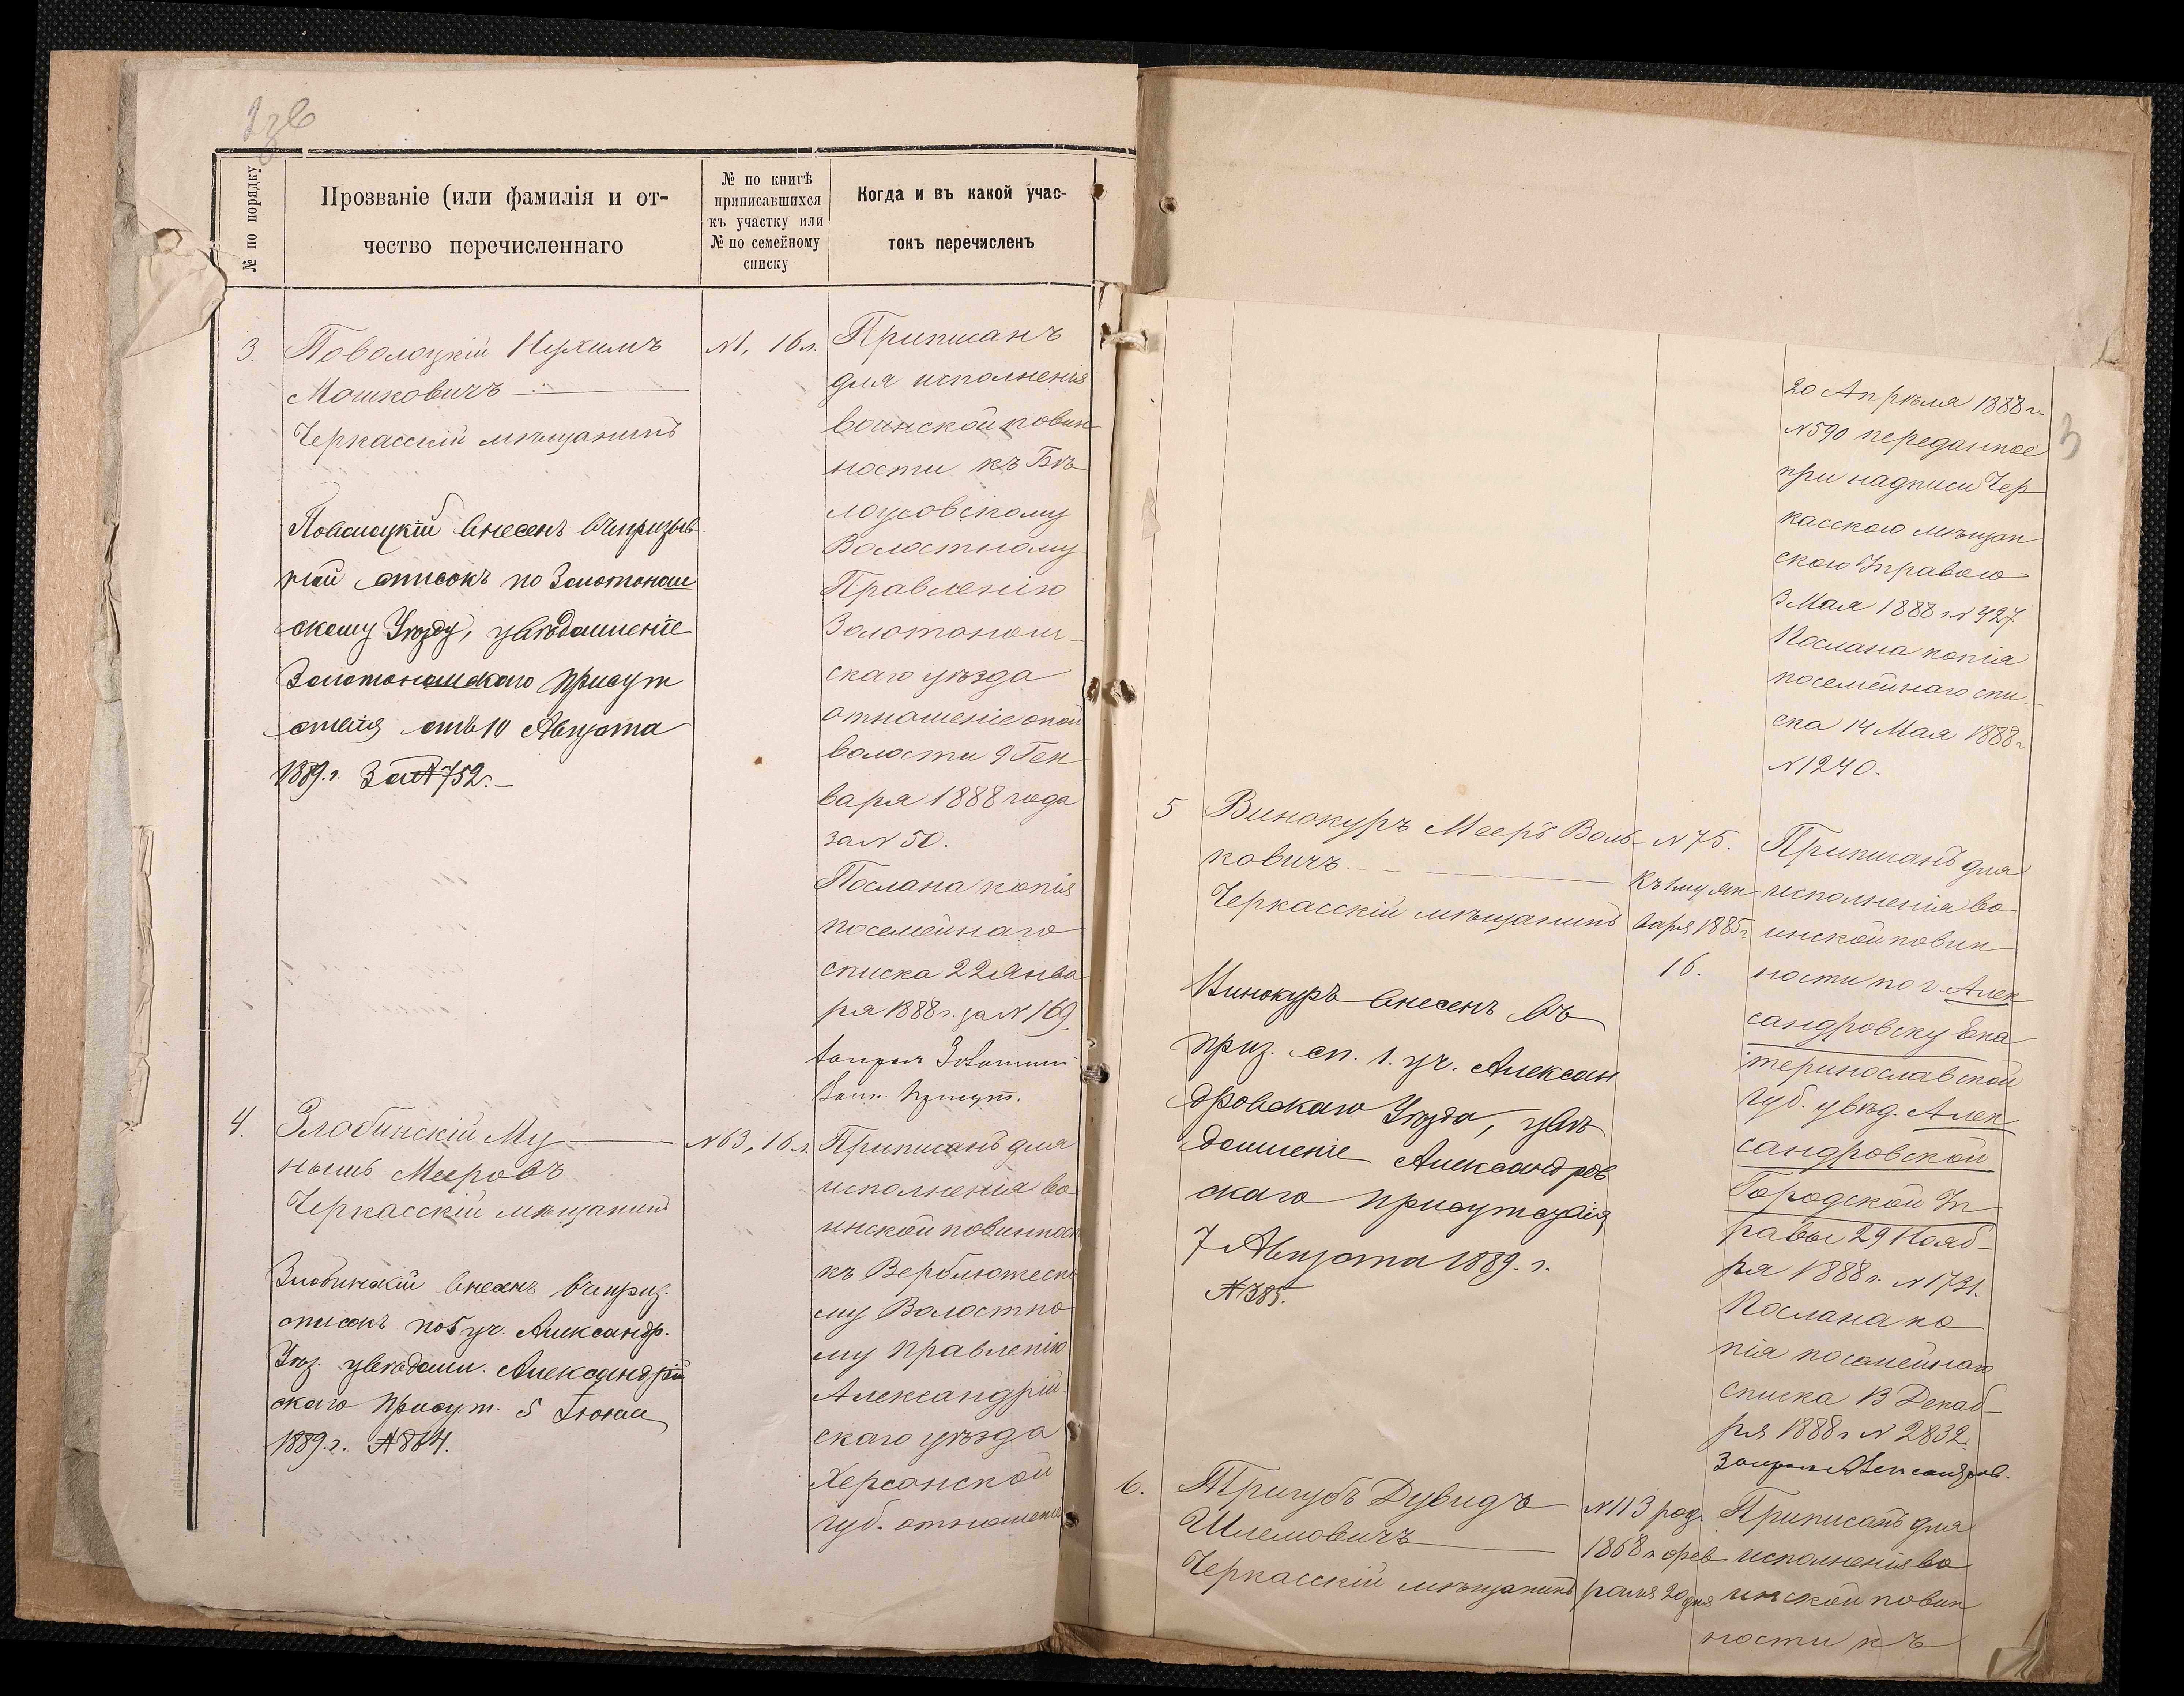 № по порядку
Прозваніе (или фамилія и от-
чество перечисленнаго
№ по книгѣ
приписавшихся
къ участку или
№ по семейному
списку
Когда и въ какой учас-
токъ перечисленъ
3.
Поволоцкій Нухимъ
Мошковичъ
Черкасскій мѣщанинъ
Поволоцкій внесенъ въ призыв
ной списокъ по Золотонош
скому Уѣзду, увѣдомленіе
Золотоношскаго присут
ствія отъ 10 Августа
1889 г. За № 752.-
№1, 16 л.
Приписанъ
для исполненія
воинской повин
ности къ Бѣ
лоусовскому
Волостному
Правленію
Золотонош-
скаго уѣзда
отношеніе оной
волости 9 Ген
варя 1888 года
за № 50.
Послана копія
посемейнаго
списка 22 Янва
ря 1888 г. за № 169.
4.
Злобинскій Му
нышъ Мееровъ
Черкасскій мѣщанинъ
Злобинскій внесенъ въ приз.
списокъ по 5 уч. Александр.
Уѣз. увѣдомл. Александрій
скаго присут. 5 Іюня
1889 г. № 864.
№63, 16 л.
Приписанъ для
исполненія во
инской повинност
къ Верблюжеско
му Волостно
му правленію
Александрій-
скаго уѣзда
Херсонской
губ. отношеніе
3
20 Апрѣля 1888 г.
№590 переданное
при надписи Чер
касскою мѣщан
скою Управою
3 Мая 1888 г. № 427
Послана копія
посемейнаго спи-
ска 14 Мая 1888 г
№1240.
5
Винокуръ Мееръ Воль-
ковичъ.
Черкасскій мѣщанинъ
Винокуръ внесенъ въ
приз. сп. 1. уч. Алексан
дровскаго Уѣзда, увѣ
домленіе Александров
скаго присутствія
7 Августа 1889. г.
№385.
№75.
Къ 1му Ян
варя 1885 г.
16.
Приписанъ для
исполненія во
инской повин
ности по г. Алек
сандровску Ека
теринославской
губ. увѣд. Алек
сандровской
Городской Уп
равы 29 Нояб-
ря 1888 г. № 1731.
Послана ко
пія посемейнаго
списка 13 Декаб-
ря 1888 г № 2832.
6.
Тригубъ Дувидъ
Шлемовичъ
Черкасскій мѣщанинъ
№113 род.
1868 г. фев
раля 20 дня
Приписанъ для
исполненія во
инской повин
ности къ